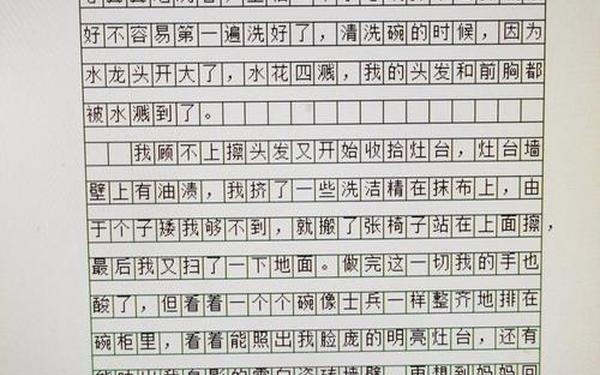 好不容易第一遍洗好了，清洗碗的时候，因为
水龙头开大了，水花四溅，我的头发和前胸都
被水溅到了。
我顾不上擦头发又开始收拾灶台，灶台墙
壁上有油渍，我挤了一些洗洁精在抹布上，由
于个子矮我够不到，就搬了张椅子站在上面擦，
最后我又扫了一下地面。做完这一切我的手也
酸了，但看着一个个碗像士兵一样整齐地排在
碗柜里，看着能照出我脸庞的明亮灶台，还有